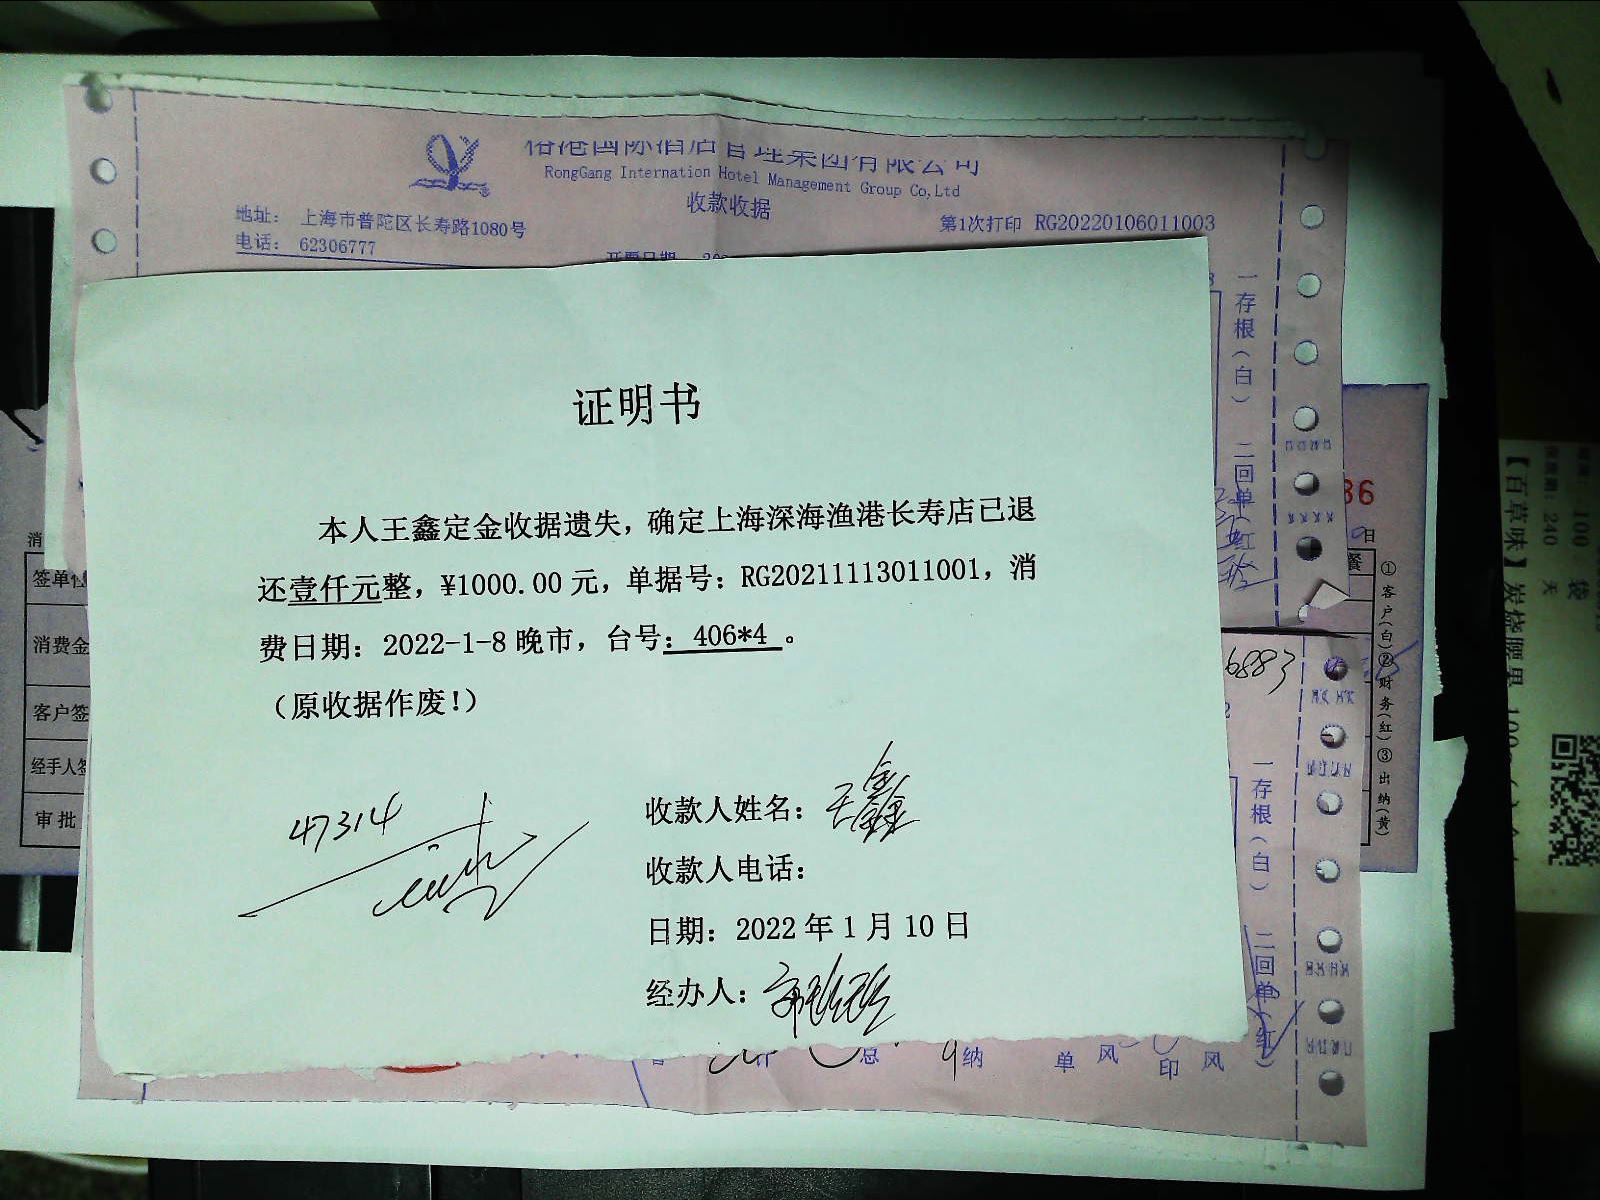 裕港国际酒店管理集团有限公司
RongGang Internation Hotel Management Group Co,Ltd
收款收据
地址: 上海市普陀区长寿路1080号
第1次打印 RG20220106011003
电话: 62306777
开票日期
证明书
本人王鑫定金收据遗失，确定上海深海渔港长寿店已退
还壹仟元整，¥1000.00元，单据号：RG20211113011001，消
费日期：2022-1-8晚市，台号：406*4。
（原收据作废！）
47314
收款人姓名：王鑫
收款人电话：
日期：2022年1月10日
经办人：
一存根(白) 二回单(红)
一存根(白) 二回单(红)
6883
36
日
餐
①客户(白)②财务(红)③出纳(黄)
消
签单
消费金
客户签
经手人签
审批
总
纳
单
风
印
风
【百草味】炭烧腰果
100 袋
240 天